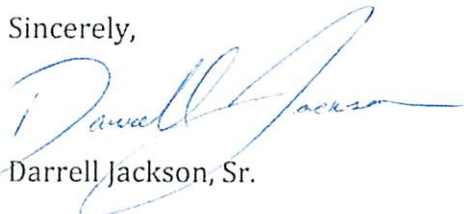 Sincerely,
Darrell Jackson
Darrell Jackson, Sr.